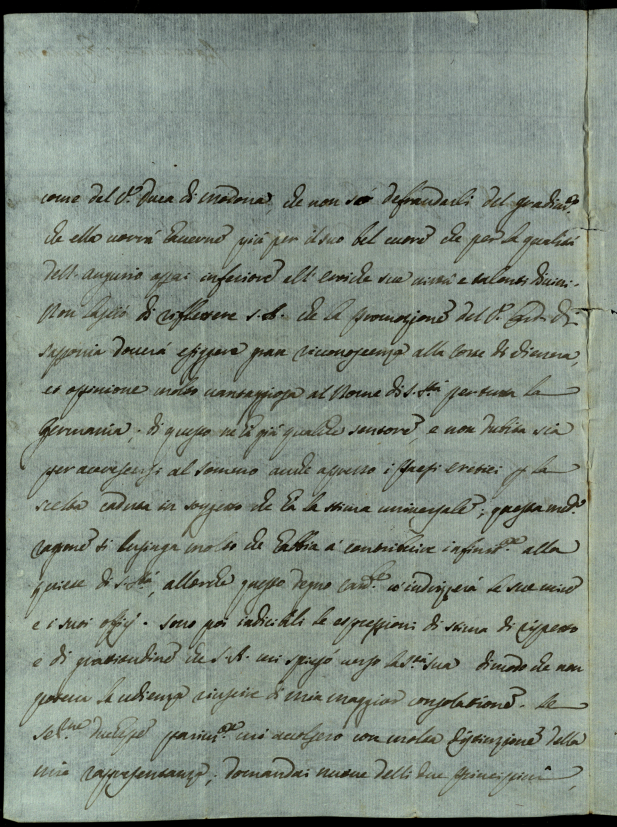 come del S.r Duca di Modona, che non sò defraudarli del gradim.to
che ella vorrà haverne più per il suo bel cuore che per la qualità
dell'augurio assai inferiore all'eroiche sue virtù e talenti divini.
Non lasciò di riflettere S. A. che la promozione del S.r Card. di
Sassonia doverà esiggere gran riconoscenza alla Corte di Vienna,
et opinione molto vantaggiosa al Nome di S. S.tà per tutta la
Germania; di questo ne hà già qualche sentore, e non dubita sia
per accrescersi al sommo anche appresso i stessi eretici p la
scelta caduta in soggetto che hà la stima universale; questa med.a
ragione si lusinga molto che habbia à contribuire infinit.e alla
quiete di S. S.tà, allorche questo degno Card.le v'indrizzerà le sue mire
e i suoi offizj. Sono poi indicibili le espressioni di stima di rispetto
e di gratitudine che S. A. mi spiegò verso la S.tà Sua di modo che non
poteva la udienza riuscire di mia maggior consolatione. Le
Ser.me Duchesse parim.te mi accolsero con molta distinzione della
mia rappresentanza; domandai nuove delli due Principini,